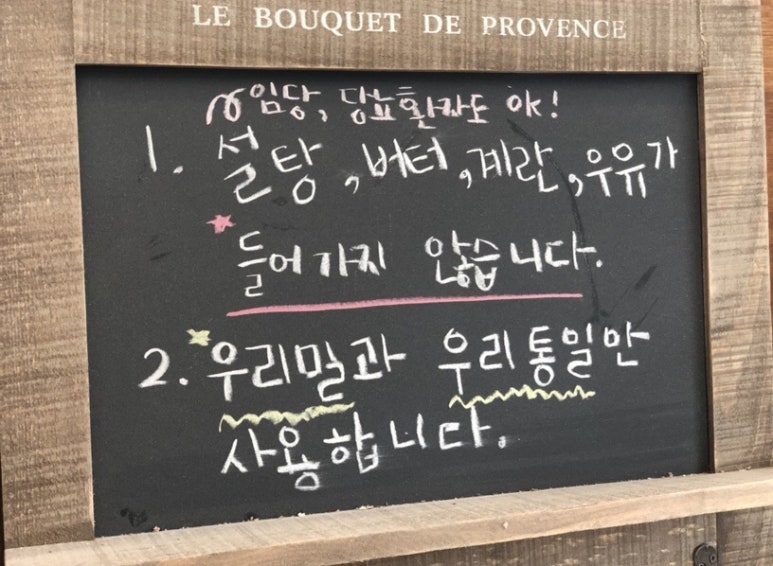 LE BOUQUET DE PROVENCE
임당, 당뇨환자도 ok!
1. 설탕, 버터, 계란, 우유가
들어가지 않습니다.
2. 우리밀과 우리통밀만
사용합니다.